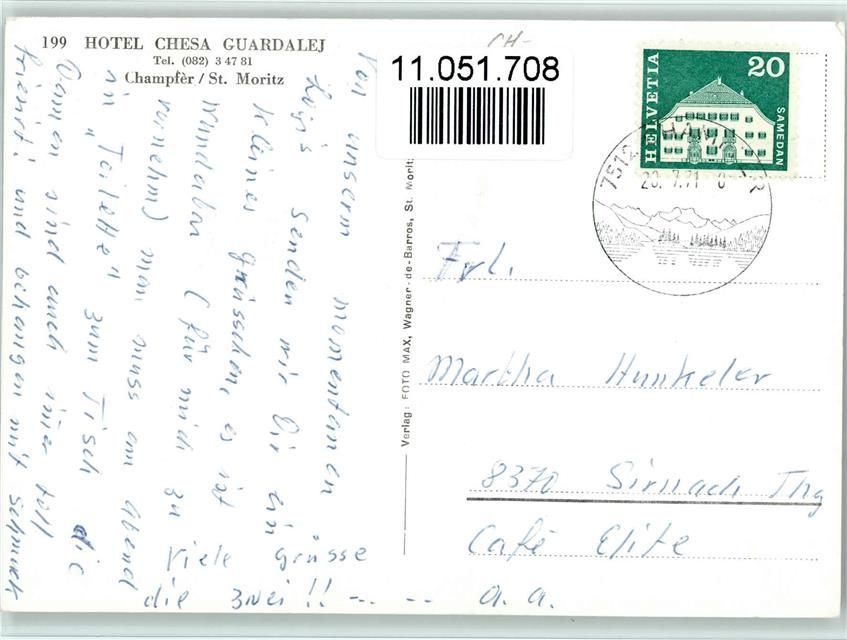 199 HOTEL CHESA GUARDALEJ
Tel. (082) 3 47 81
Champfèr / St. Moritz
Von unserm momentanen
Logis senden wir Dir ein
kleines grüsschen, es ist
Wundabar (für mich zu
vornehm) man muss am Abend
in "Toilette" zum Tisch die
Damen sind auch immer toll
frisiert und behangen mit schmuck
Viele grüsse
die zwei !! -.. ..
Verlag: FOTO MAX, Wagner-de-Barros, St. Moritz
CH-
11.051.708
HELVETIA
20
SAMEDAN
7512 CHAMPFER
20. 7.71
Frl.
Martha Hunkeler
8370 Sirnach Thg
Café Elite
a. a.